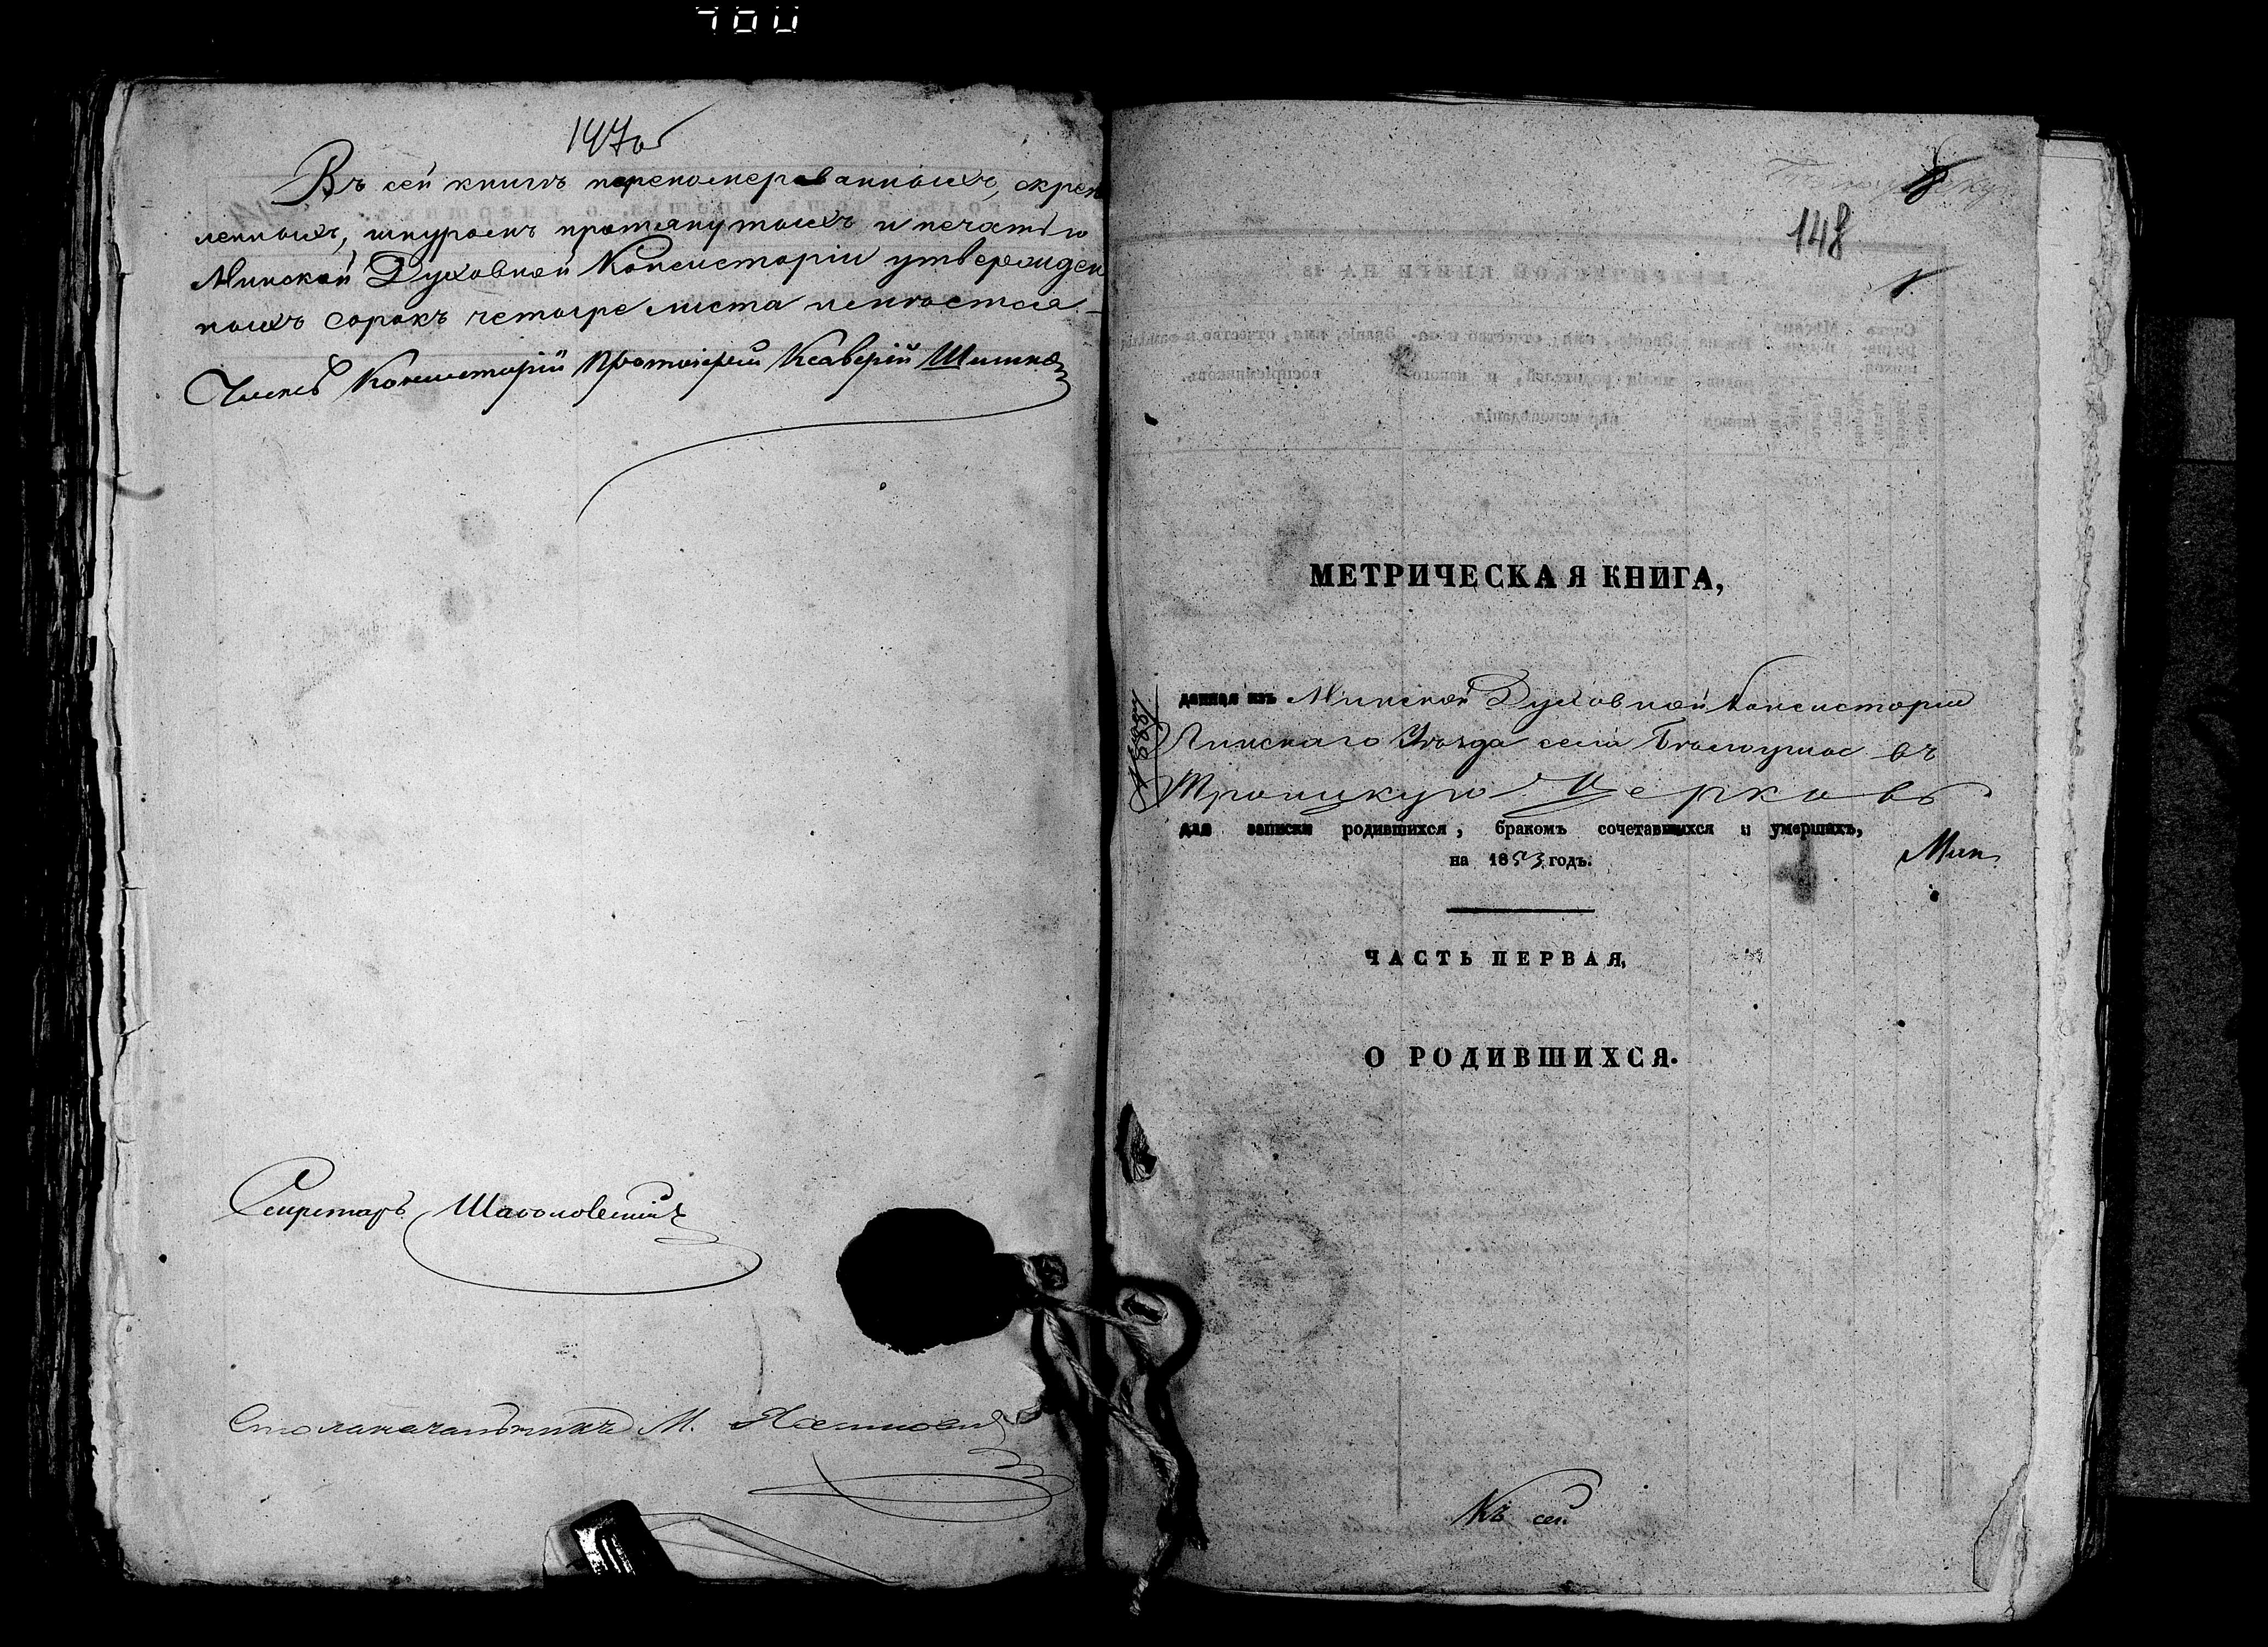 700
147об
Въ сей книгѣ переномерованныхъ, скреп
ленныхъ, шнуромъ протянутыхъ и печатью
Минской Духовной Консисторіи утвержден
ныхъ сорокъ четыре листа имѣется
Членъ Консисторіи Протоіерей Ксаверій
Секретарь
Столоначальникъ М.
148
1
МЕТРИЧЕСКАЯ КНИГА,
данная изъ Минской Духовной Консисторіи
Пинскаго Уѣзда села Бѣлоуша въ
Троицкую Церковь
для записки родившихся, бракомъ сочетавшихся и умершихъ,
на 1853 годъ.
Мин
ЧАСТЬ ПЕРВАЯ,
О РОДИВШИХСЯ.
Къ сей